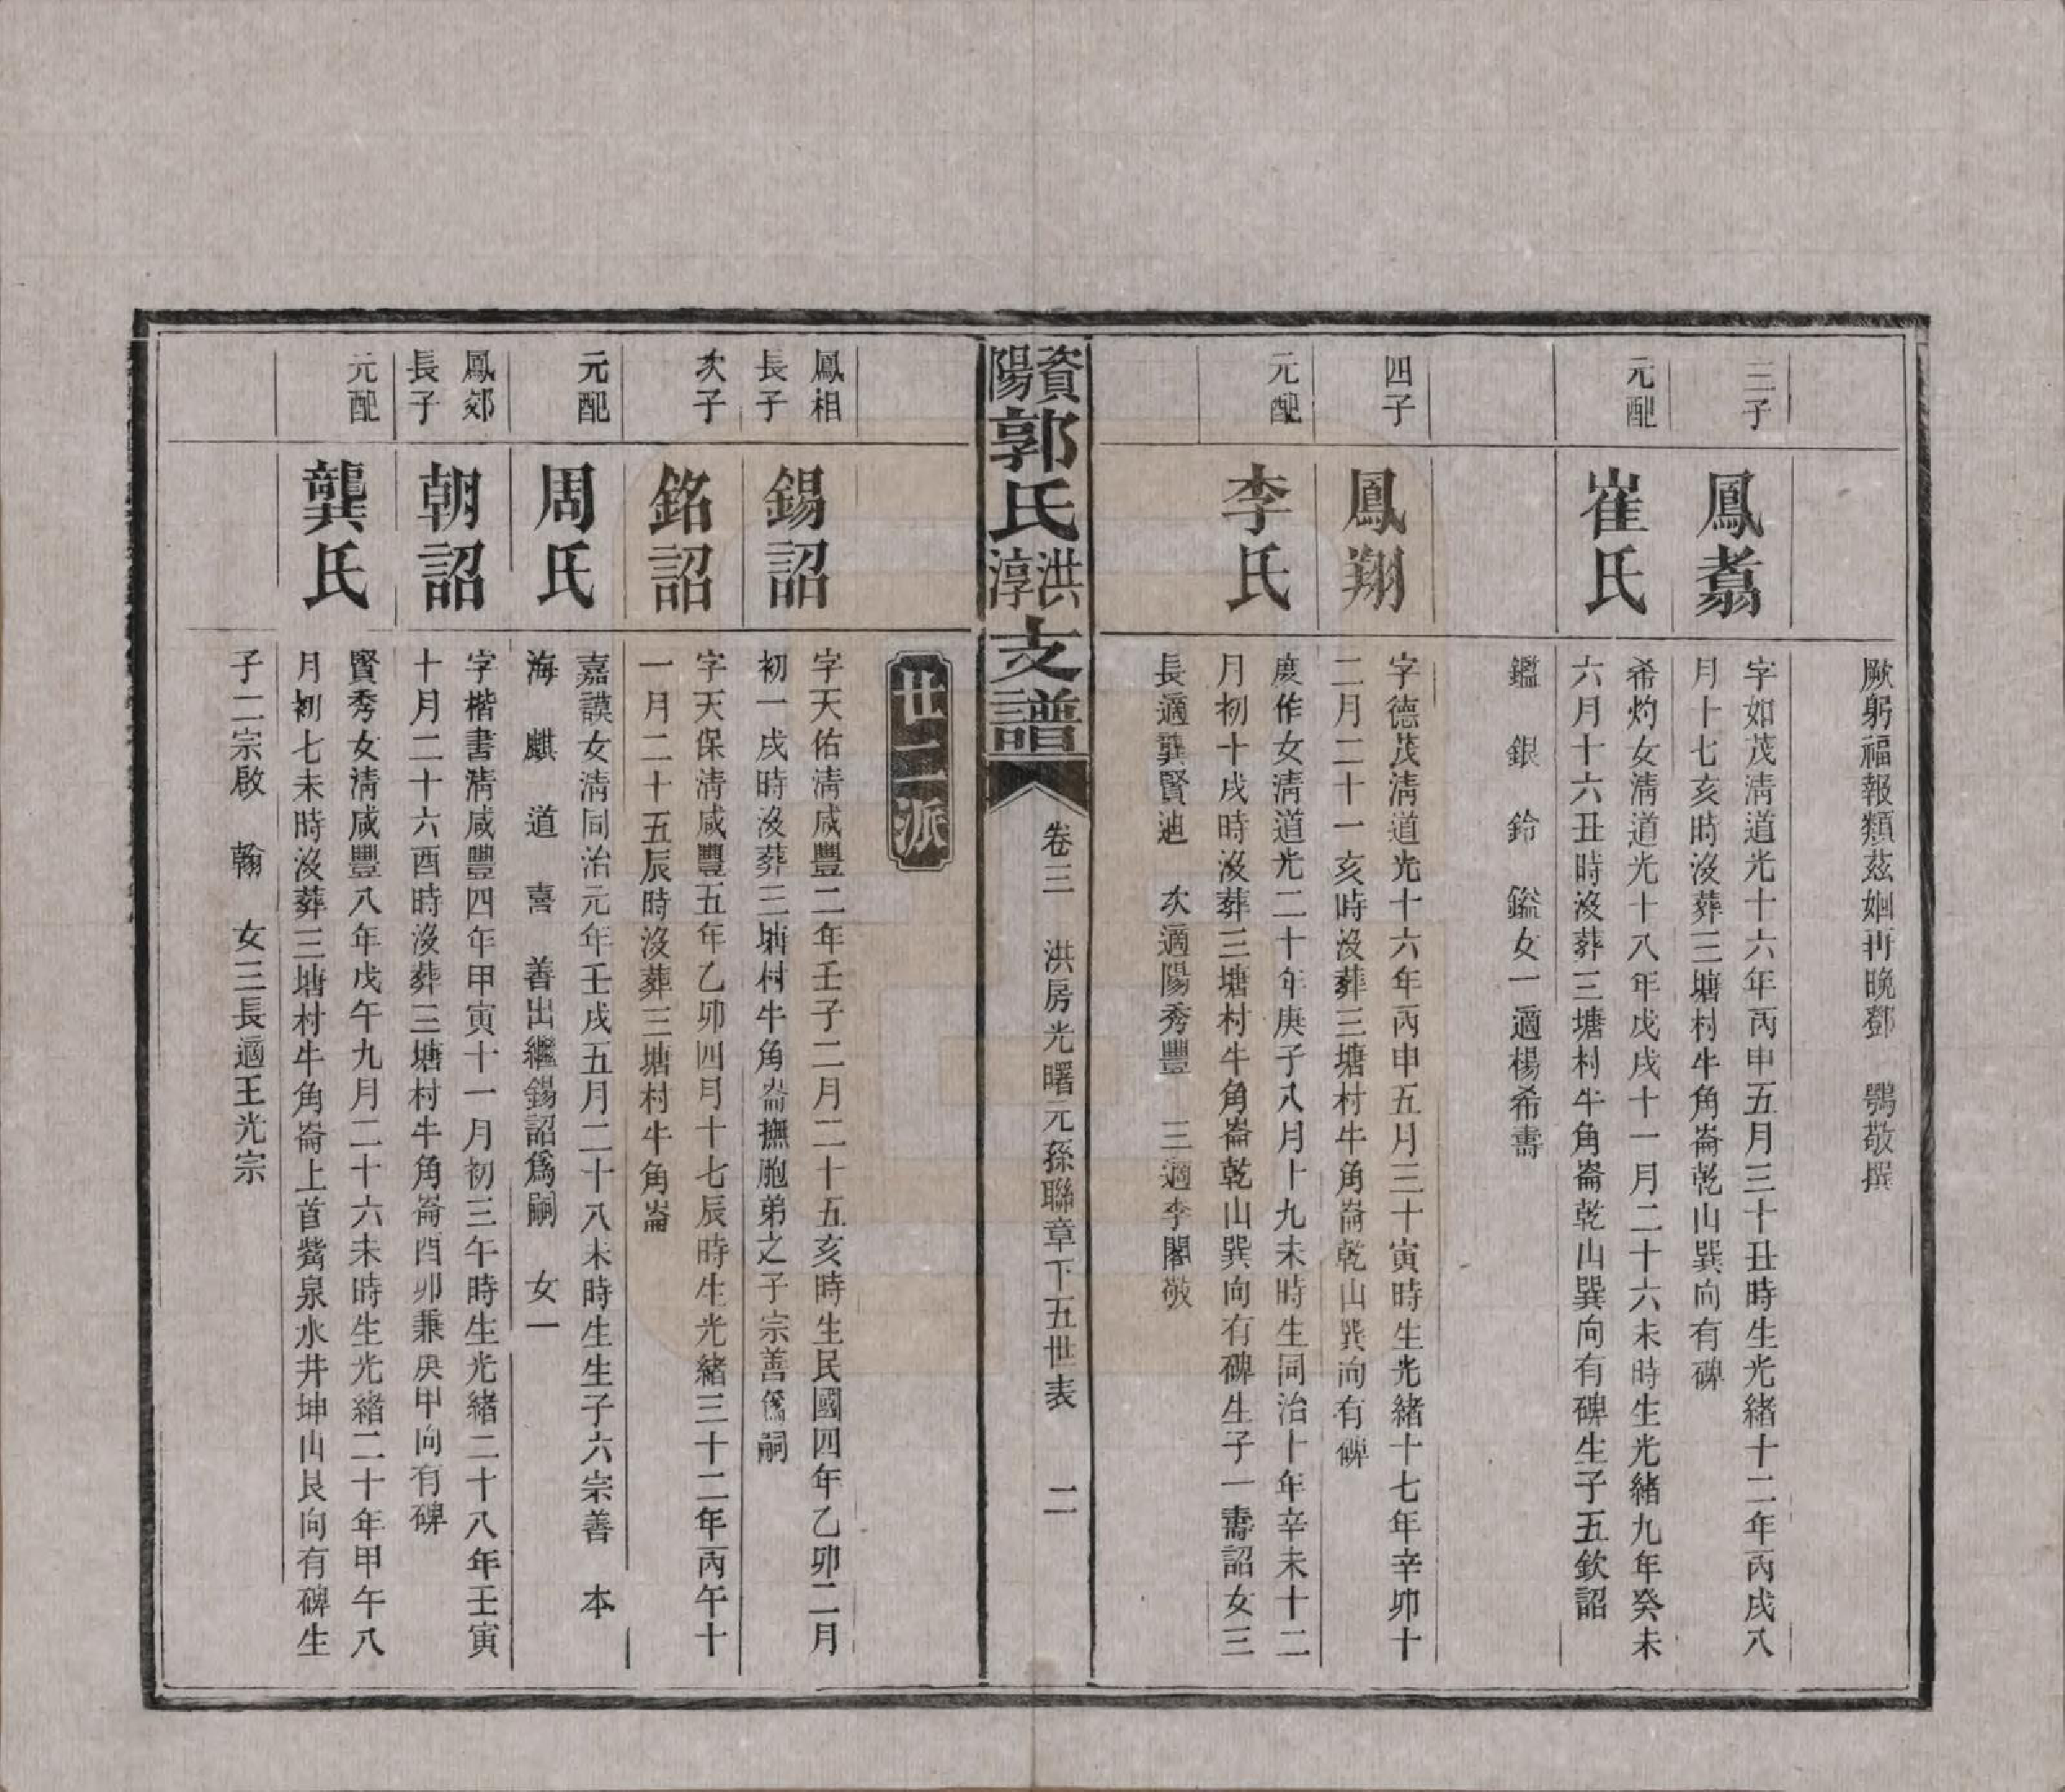 厥躬福報類茲姻再晚鄧　鶚敬撰
三子
鳳翥
字如茂淸道光十六年丙申五月三十丑時生光緒十二年丙戌八
月十七亥時沒葬三塘村牛角崙乾山巽向有碑
元配
崔氏
希灼女淸道光十八年戊戌十一月二十六未時生光緒九年癸未
六月十六丑時沒葬三塘村牛角崙乾山巽向有碑生子五欽詔
鑑　銀　鈴　鎰女一適楊希壽
四子
鳳翔
字德茂淸道光十六年丙申五月三十寅時生光緒十七年辛卯十
二月二十一亥時沒葬三塘村牛角崙乾山巽向有碑
元配
李氏
庋作女淸道光二十年庚子八月十九未時生同治十年辛未十二
月初十戌時沒葬三塘村牛角崙乾山巽向有碑生子一壽詔女三
長適龔賢迪　次適陽秀豐　三適李閣敬
資陽郭氏洪淳支譜
卷三　洪房光曙元孫聯章下五世表　二
世二派
鳳相長子
錫詔
字天佑淸咸豐二年壬子二月二十五亥時生民國四年乙卯二月
初一戌時沒葬三塘村牛角崙撫胞弟之子宗善爲嗣
次子
銘詔
字天保淸咸豐五年乙卯四月十七辰時生光緒三十二年丙午十
一月二十五辰時沒葬三塘村牛角崙
元配
周氏
嘉謨女淸同治元年壬戌五月二十八未時生生子六宗善　本
海　麒　道　喜　善出繼錫詔爲嗣　女一
鳳郊長子
朝詔
字楷書淸咸豐四年甲寅十一月初三午時生光緒二十八年壬寅
十月二十六酉時沒葬三塘村牛角崙酉卯兼庚甲向有碑
元配
龔氏
賢秀女淸咸豐八年戊午九月二十六未時生光緒二十年甲午八
月初七未時沒葬三塘村牛角崙上首觜泉水井坤山艮向有碑生
子二宗啟　翰　女三長適王光宗